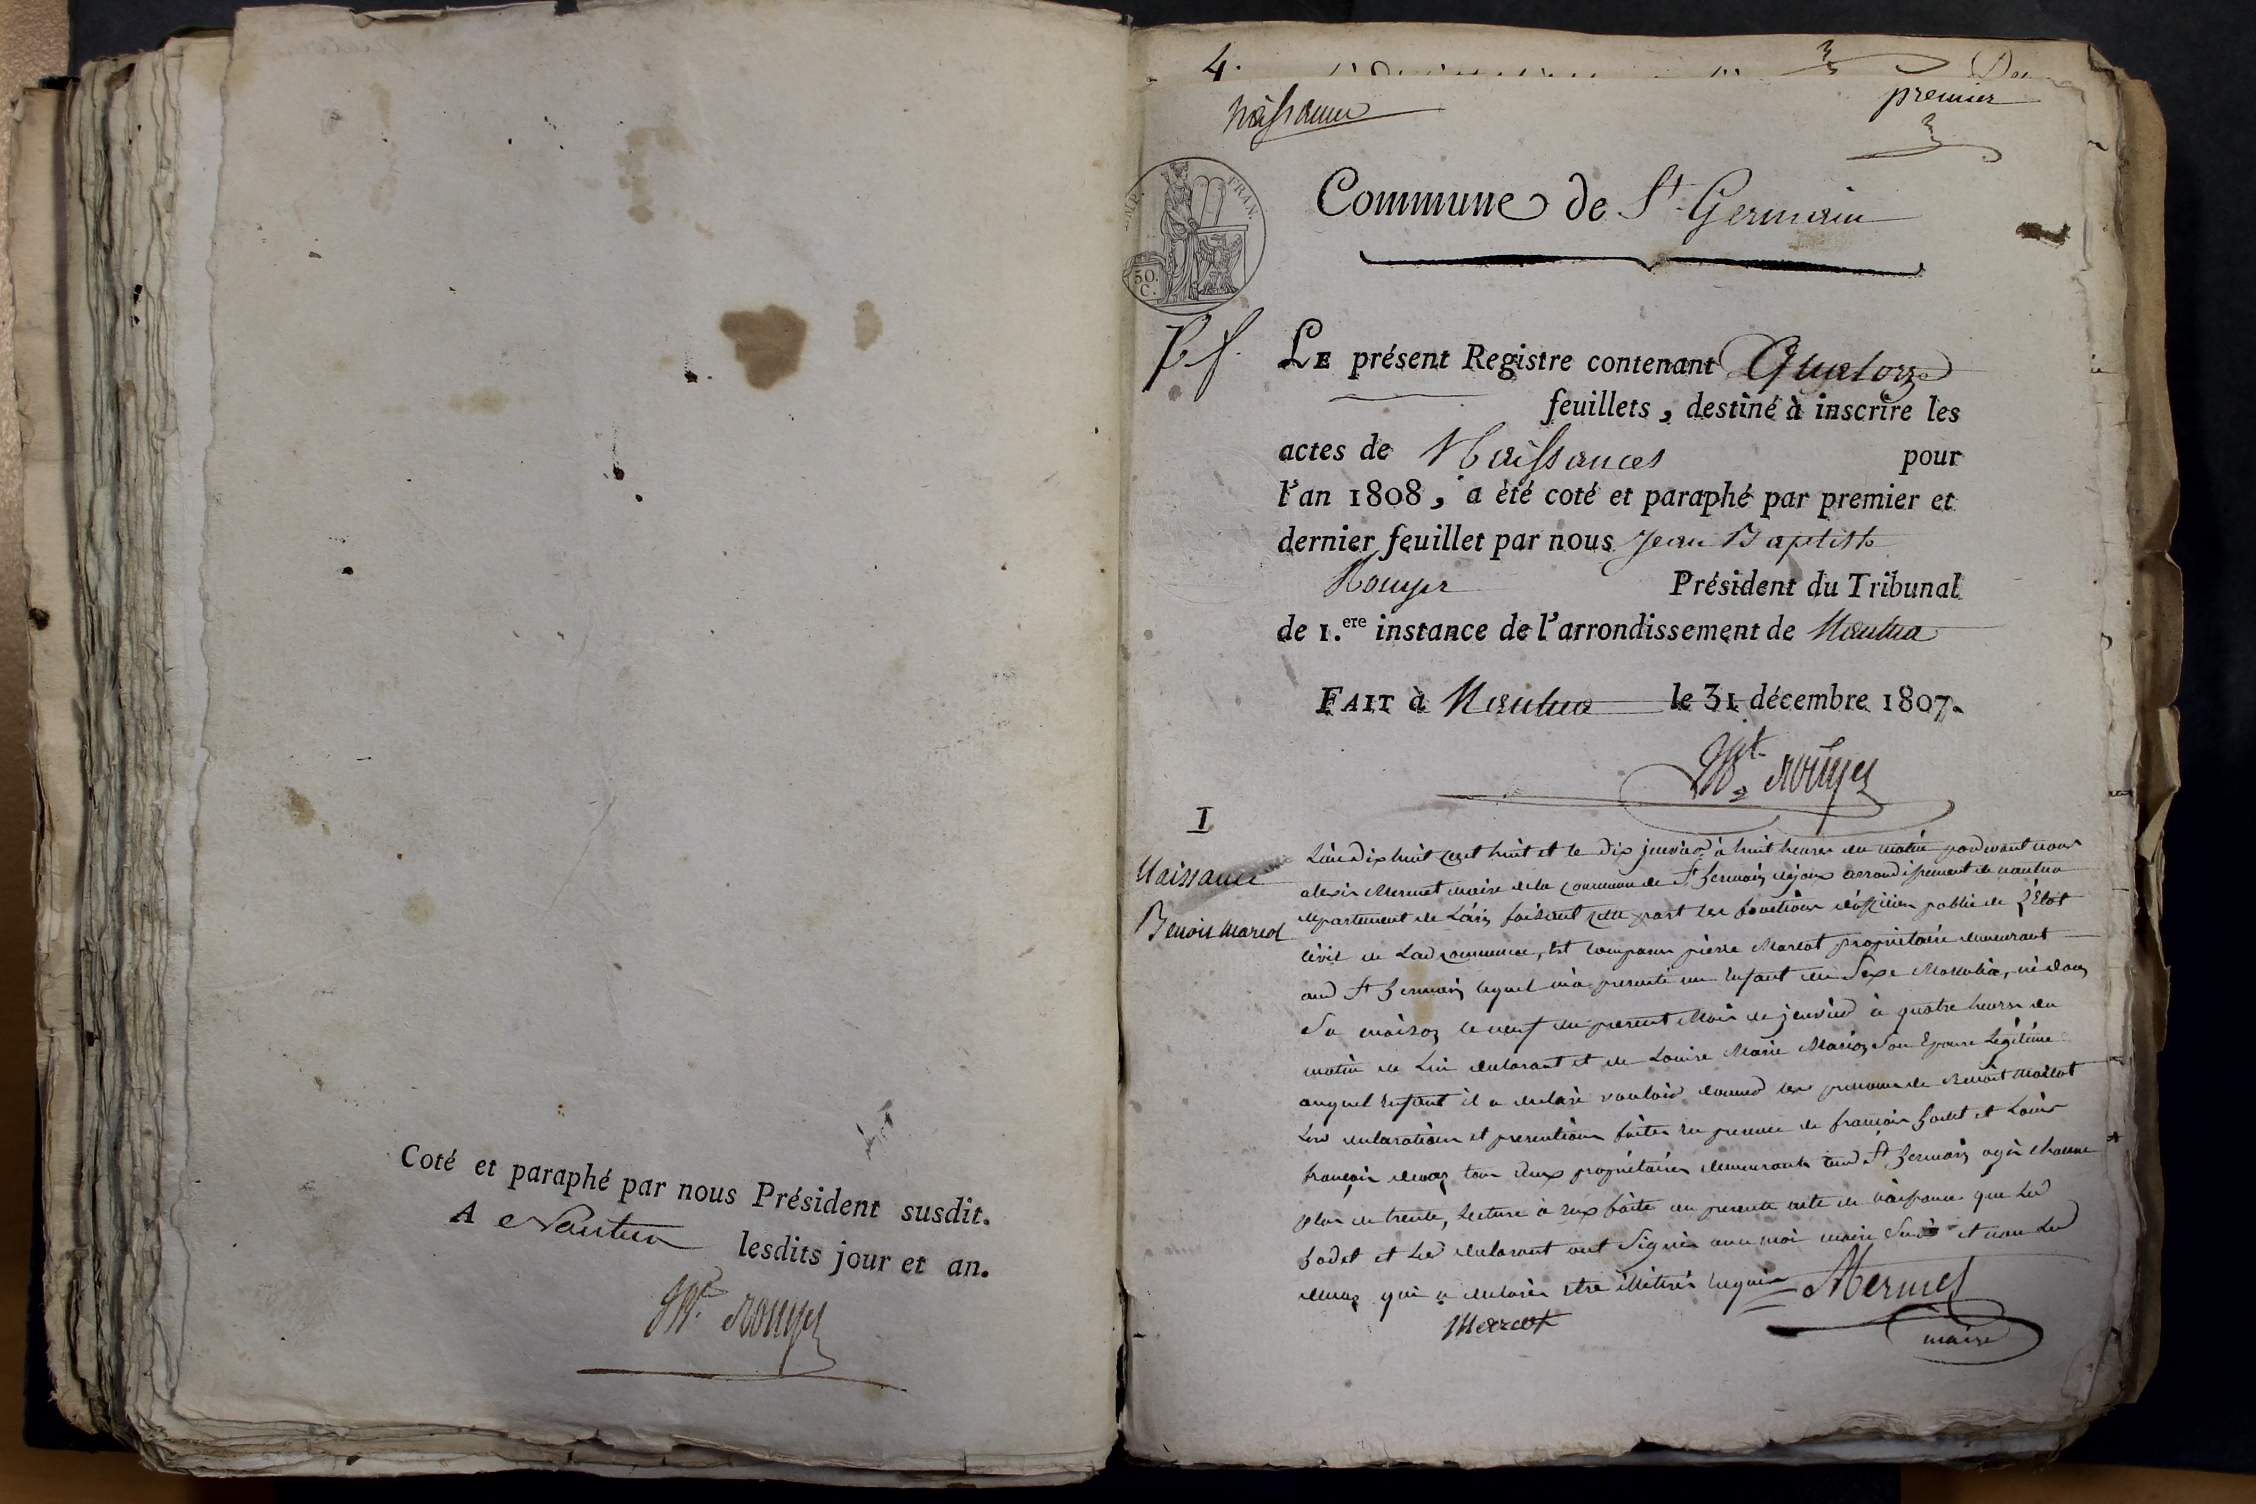 Coté et paraphé par nous Président susdit.
A Nantua lesdits jour et an.
JBte. Rouyer
4.
premier
Naissances
IMP. FRAN.
50.
C.
Commune de St Germain
LE présent Registre contenant Quatorze
feuillets, destiné à inscrire les
actes de Naissances pour
l'an 1808, a été coté et paraphé par premier et
dernier feuillet par nous Jean Baptiste
Rouyer Président du Tribunal
de 1.ere instance de l'arrondissement de Nantua
FAIT à Nantua le 31 décembre 1807.
JBte. Rouyer
I
Naissance
Benoit Marcot
L'an dix huit cent huit et le dix janvier à huit heures du matin pardevant nous
alexis Mermet maire de la commune de St Germain dejoux arrondissement de nantua
departement de L'ain faisant cette part les fonctions d'officier public de l'Etat
civil de Lad commune, Est comparu pierre Marcot proprietaire demeurant
aud St Germain lequel m'a presenté un Enfant du Sexe Masculin, né dans
Sa maison le neuf du present Mois de janvier à quatre heures du
matin de Lui declarant et de Louise Marie Marion Son Epouse Légitime
auquel Enfant il a declaré vouloir donner les prenoms de Benoit Marcot
Les declaration et presentation faites en presence de francois Godet et Louis
françois tous deux proprietaires demeurants aud St Germain agés chacun
plus de trente, Lecture à Eux faite du present acte de naissance que Led
Godet et Led declarant ont Signés avec moi maire Sus et non Led
qui a declaré etre illitéré requis Mermet
Marcot
maire